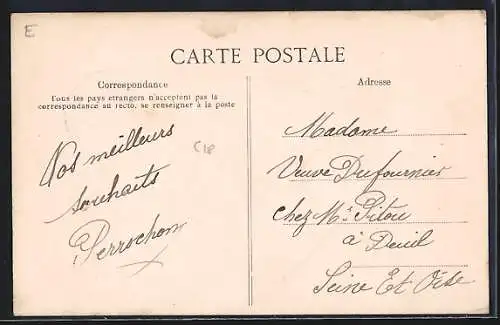 E
CARTE POSTALE
Correspondance
Tous les pays étrangers n'acceptent pas la
correspondance au recto, se renseigner à la poste
Nos meilleurs
souhaits
Perrochon
C18
Adresse
Madame
Veuve Dufournier
chez Mr Pitou
à Deuil
Seine Et Oise